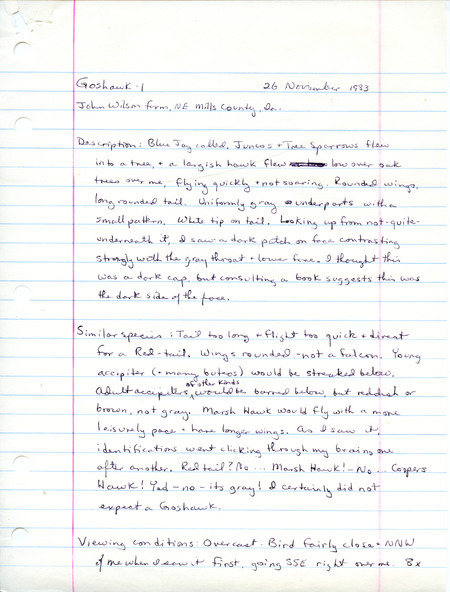 Goshawk - 1 26 November 1983
John Wilson farm, NE Mills County, Ia.
Description: Blue Jay called, Juncos + Tree Sparrows flew
into a tree, + a largish hawk flew low over oak
trees over me, flying quickly + not soaring. Rounded wings,
long rounded tail. Uniformly gray underparts with a
small pattern. White tip on tail. Looking up from not-quite-
underneath it, I saw a dark patch on face contrasting
strongly with the gray throat + lower face. I thought this
was a dark cap, but consulting a book suggests this was
the dark side of the face.
Similar species: Tail too long + flight too quick + direct
for a Red-tail. Wings rounded - not a falcon. Young
accipiter (+ many buteos) would be streaked below.
Adult accipiters, of other kinds would be barred below, but reddish or
brown, not gray. Marsh Hawk would fly with a more
leisurely pace + have longer wings. As I saw it,
identifications went clicking through my brain one
after another. Red tail? No ... Marsh Hawk! - No ... Coopers
Hawk! Yes - no - its gray! I certainly did not
expect a Goshawk.
Viewing conditions: Overcast. Bird fairly close - NNW
of me when I saw it first, going SSE right over me. 8x